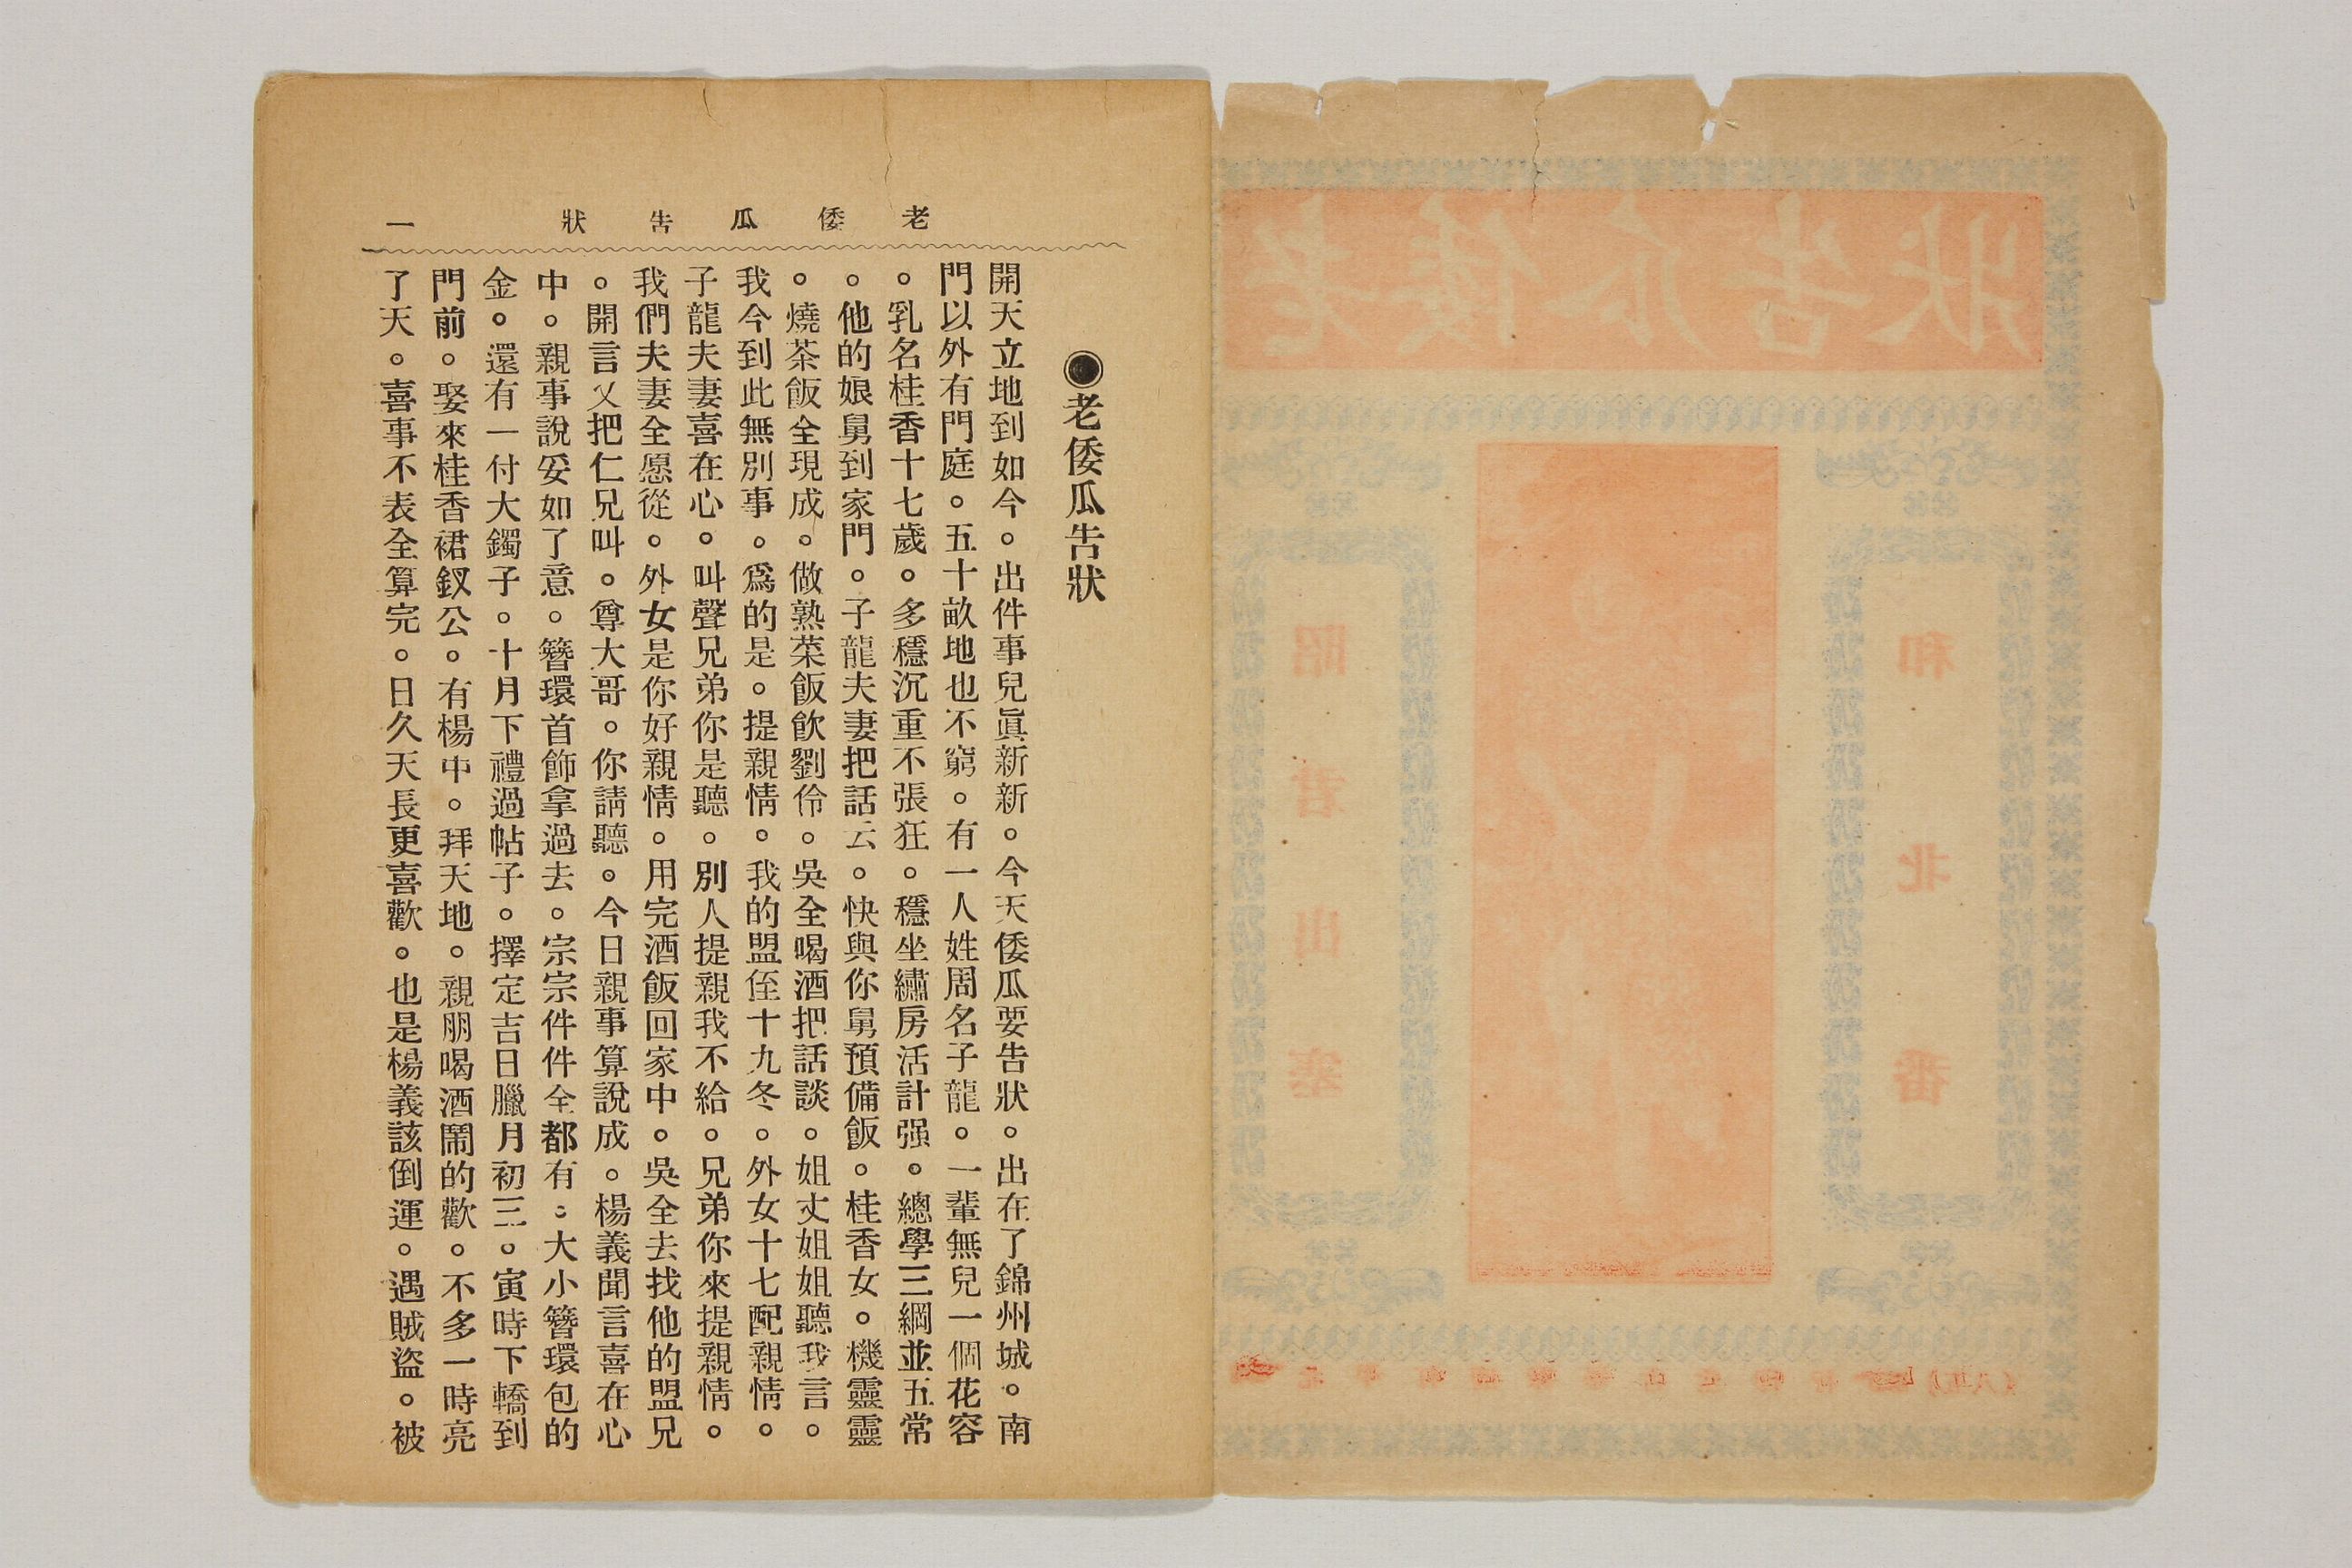 狀告瓜倭老
和北番
昭君出塞
老倭瓜告狀 一
●老倭瓜告狀
開天立地到如今。出件事兒眞新新。今天倭瓜要告狀。出在了錦州城。南
門以外有門庭。五十畝地也不窮。有一人姓周名子龍。一輩無兒一個花容
。乳名桂香十七歲。多穩沉重不張狂。穩坐繡房活計强。總學三綱並五常
。他的娘舅到家門。子龍夫妻把話云。快與你舅預備飯。桂香女。機靈靈
。燒茶飯全現成。做熟菜飯飮劉伶。吳全喝酒把話談。姐丈姐姐聽我言。
我今到此無別事。爲的是。提親情。我的盟侄十九冬。外女十七配親情。
子龍夫妻喜在心。叫聲兄弟你是聽。別人提親我不給。兄弟你來提親情。
我們夫妻全愿從。外女是你好親情。用完酒飯回家中。吳全去找他的盟兄
。開言又把仁兄叫。尊大哥。你請聽。今日親事算說成。楊義聞言喜在心
中。親事說妥如了意。簪環首飾拿過去。宗宗件件全都有。大小簪環包的
金。還有一付大鐲子。十月下禮過帖子。擇定吉日臘月初三。寅時下轎到
門前。娶來桂香裙釵公。有楊中。拜天地。親朋喝酒鬧的歡。不多一時亮
了天。喜事不表全算完。日久天長更喜歡。也是楊義該倒運。遇賊盜。被